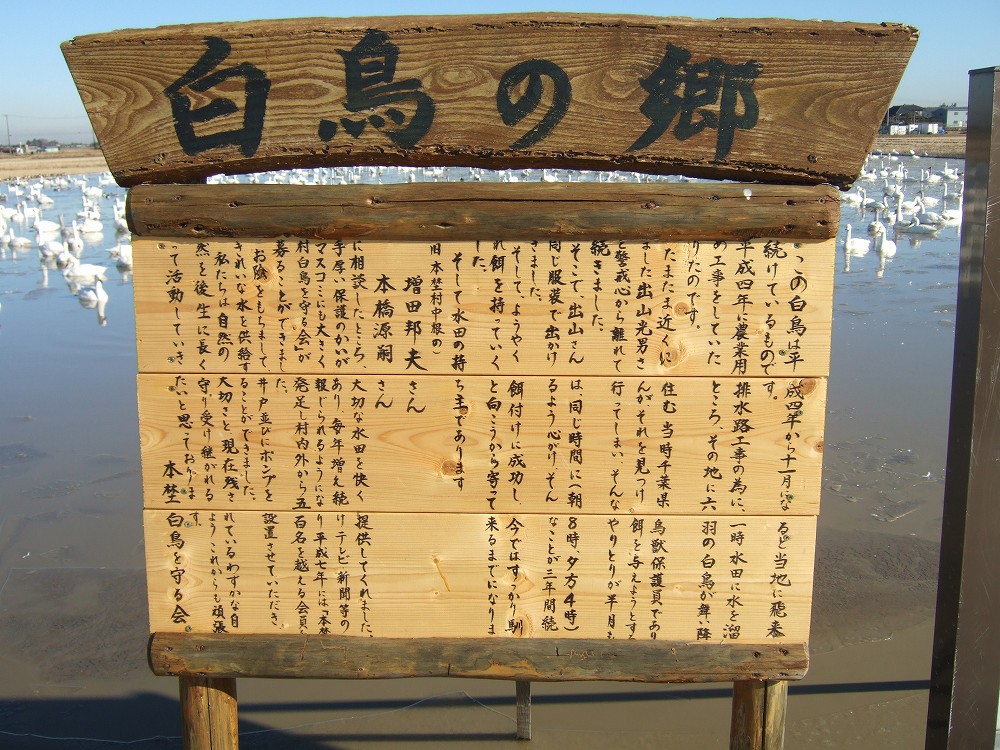 白鳥の郷
この白鳥は平成四年から十一月になると当地に飛来
続けているものです。
平成四年に農業用排水路工事の為に、一時水田に水を溜
め工事をしていたところ、その地に六羽の白鳥が舞い降
りたのです。
たまたま近くに住む当時千葉県鳥獣保護員であり
ました出山光男さんがそれを見つけ餌を与えようとする
と警戒心から離れて行ってしまい、そんなやりとりが半月も
続きました。
そこで、出山さんは同じ時間に(朝8時、夕方4時)
同じ服装で出かけるよう心がけそんなことが三年間続
きました。
そして、ようやく餌付けに成功し、今ではすっかり馴
れ餌を持っていくと向こうから寄って来るまでになりま
した。
そして水田の持ち主であります
旧本埜村中根の)
増田邦夫さん
本橋源嗣さん
に相談したところ、大切な水田を快く提供してくれました。
手厚い保護のかいがあり、毎年増え続けテレビ・新聞等の
マスコミにも大きく報じられるようになり平成七年には「本埜
村白鳥を守る会」が発足し村内外から五百名を越える会員を
募ることができました。
お陰をもちまして、井戸並びにポンプを設置させていただき、
きれいな水を供給することができました。
私たちは自然の大切さと現在残されているわずかな自
然を後生に長く守り受け継がれるよう、これからも頑張
って活動していきたいと思っております。
本埜白鳥を守る会